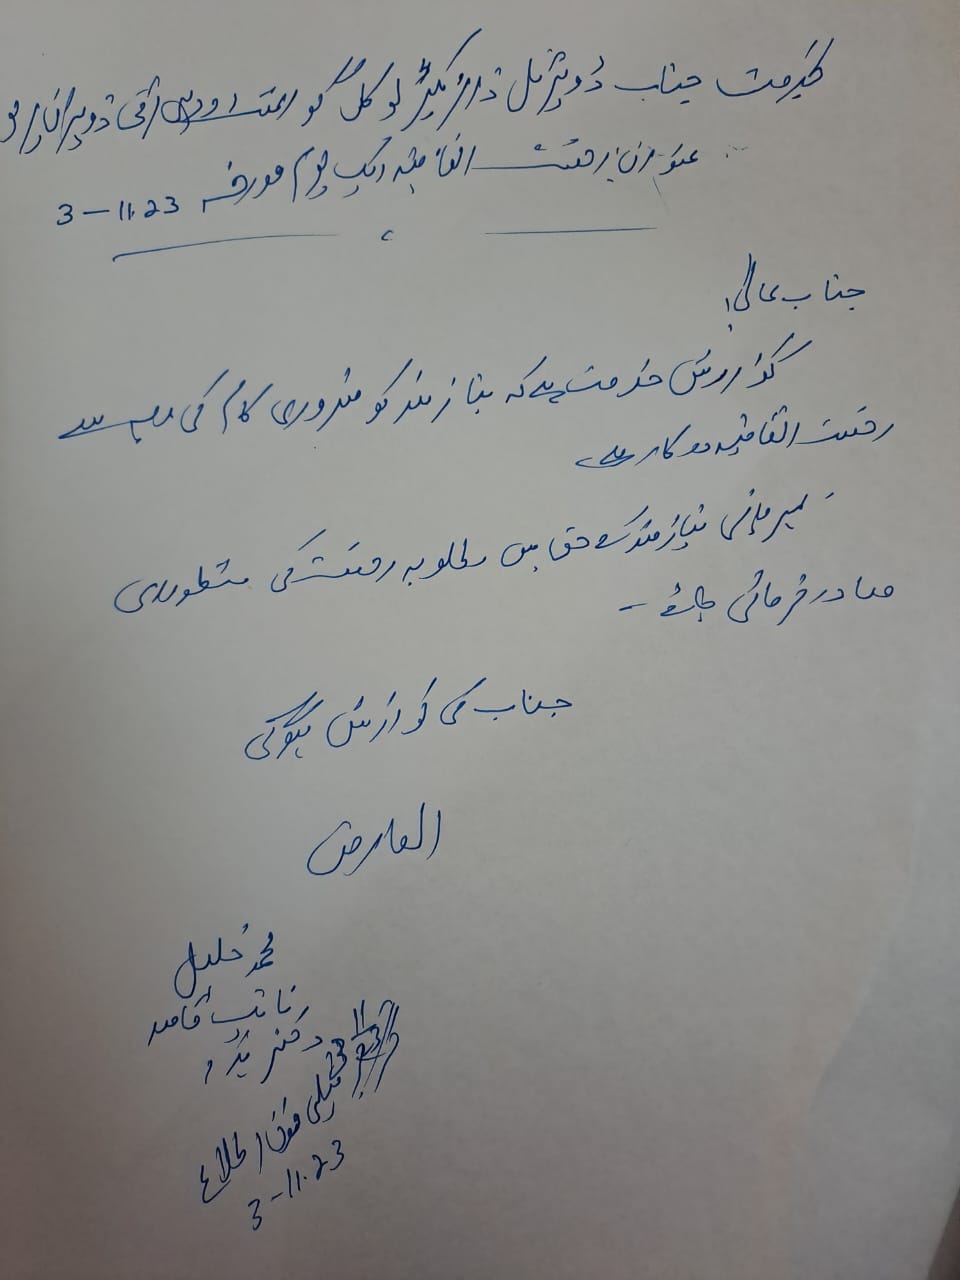 بخدمت جناب ڈویژنل ڈائریکٹر لوکل گورنمنٹ و دیہی ترقی ڈویژن
عنوان: رخصت اتفاقیہ ایک یوم مورخہ 3-11.23
جناب عالی!
گذارش خدمت ہے کہ نیازمند کو ضروری کام کی وجہ سے
رخصت اتفاقیہ درکار ہے
مہربانی نیازمند کے حق میں مطلوبہ رخصت کی منظوری
صادر فرمائی جائے -
جناب کی نوازش ہوگی
العارض
محمد خلیل
نائب قاصد
دفتر ہذا
ٹیلی فون اطلاع
3-11.23